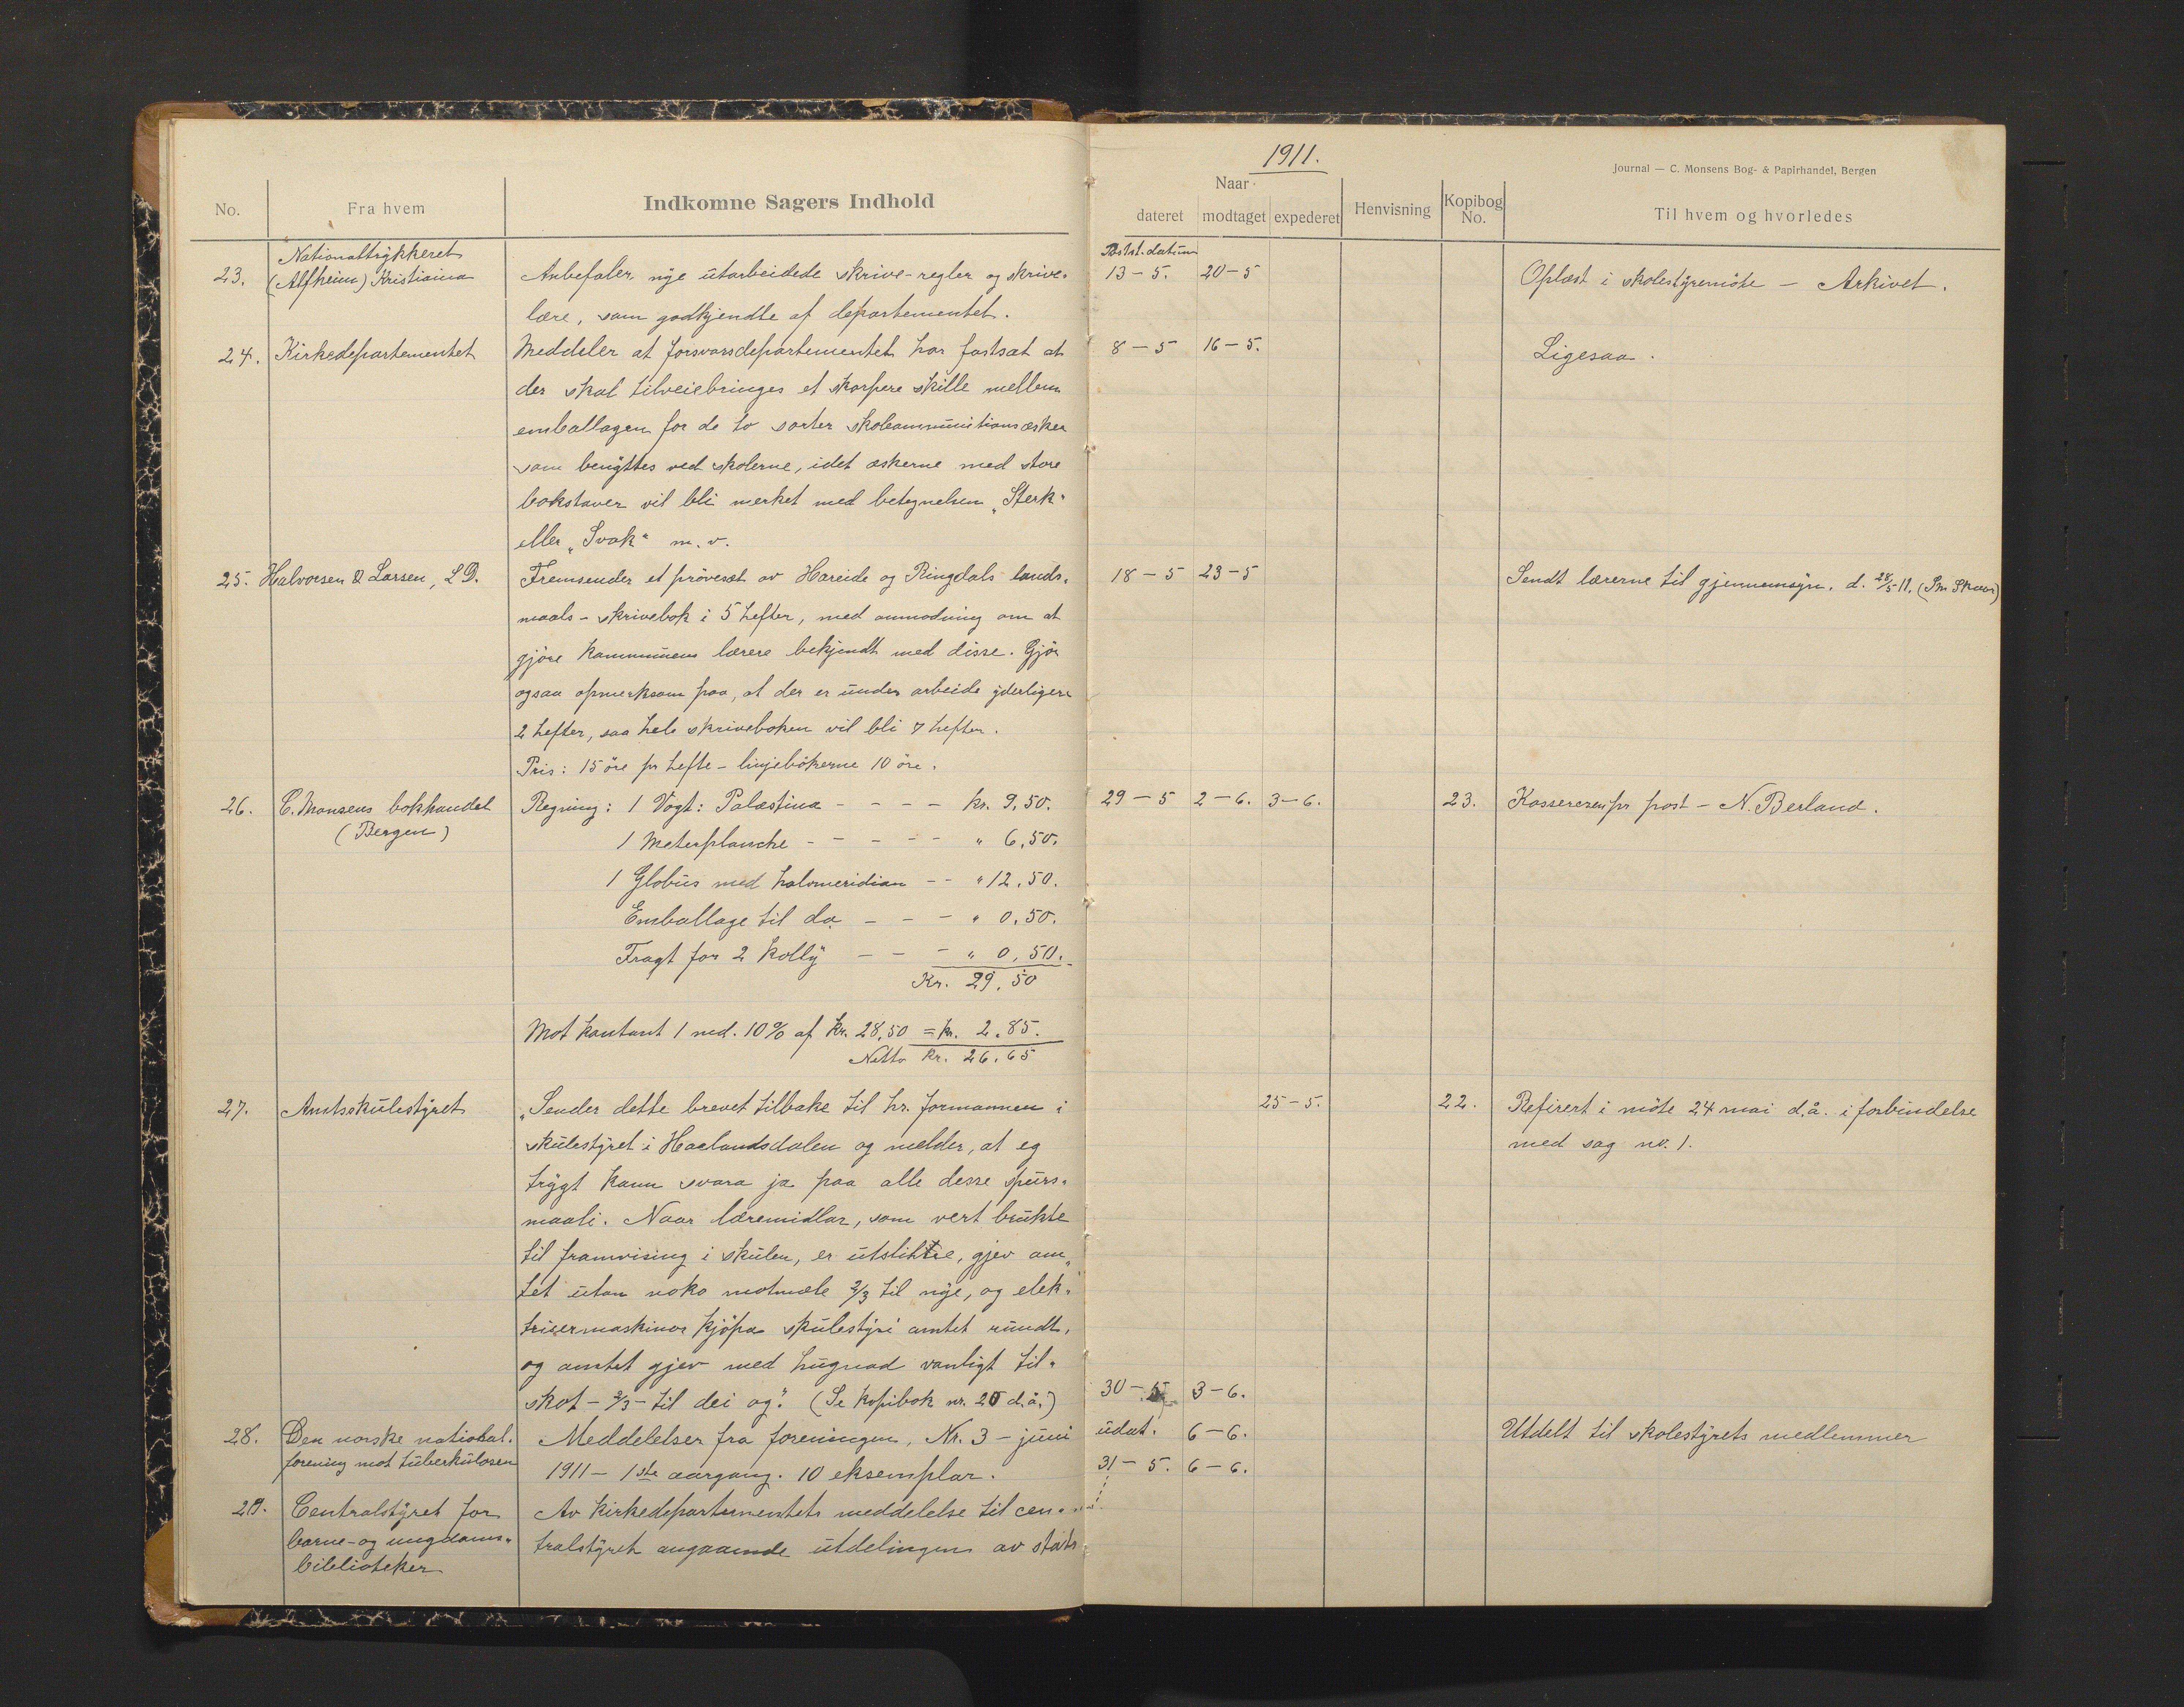 1911.
Journal — C. Monsens Bog- & Papirhandel, Bergen
No.
Fra hvem
Indkomne Sagers Indhold
Naar
dateret
modtaget
expederet
Henvisning
Kopibog No.
Til hvem og hvorledes
23.
Nationaltrykkeriet
(Alfheim) Kristiania
Anbefaler nye utarbeidede skrive-regler og skrive-
lære, som godkjendte af departementet.
Postst. datum
13-5.
20-5
Oplæst i skolestyremöte - Arkivet.
24.
Kirkedepartementet
Meddeler at forsvarsdepartementet har fastsat at
der skal tilveiebringes et skarpere skille mellem
emballagen for de to sorter skoleammunitionsæsker
som benyttes ved skolerne, idet æskerne med store
bokstaver vil bli merket med betegnelsen „Sterk"
eller „Svak" m.v.
8-5
16-5.
Ligesaa.
25.
Halvorsen & Larsen, L.D.
Fremsender et prövesæt av Hareide og Ringdals lands-
maals-skrivebok i 5 hefter, med anmodning om at
gjöre kommunens lærere bekjendt med disse. Gjör
ogsaa opmerksom paa, at der er under arbeide yderligere
2 hefter, saa hele skriveboken vil bli 7 hefter.
Pris: 15 öre pr hefte - linjebökerne 10 öre.
18-5
23-5
Sendt lærerne til gjennemsyn. d. 28/5 11.
26.
C. Monsens bokhandel
(Bergen)
Regning: 1 Vogt: Palæstina - - - - kr. 9,50.
1 Meterplanche - - - - - " 6,50.
1 Globus med halvmeridian - - " 12,50.
Emballage til do. - - - " 0,50.
Fragt for 2 kolly - - - " 0,50.
Kr. 29,50
Mot kontant 1 md. 10% af kr. 28,50 = kr. 2,85.
Netto kr. 26,65
29-5
2-6.
3-6.
23.
Kassereren pr post - N. Berland.
27.
Amtsskulestyret
„Sender dette brevet tilbake til hr. formannen i
skulestyret i Haalandsdalen og melder, at eg
trygt kann svara ja paa alle desse spurs-
maali. Naar læremidlar, som vert brukte
til framvising i skulen, er utslitne, gjev am-
tet utan noko motmæle 2/3 til nye, og elek-
trisermaskinor kjöpa skulestyri amtet rundt,
og amtet gjev med hugnad vanligt til-
skot - 2/3 - til dei og." (Se kopibok nr. 20 d.å.)
25-5.
22.
Referert i möte 24 mai d.å. i forbindelse
med sag nr. 1.
30-5
3-6.
28.
Den norske national-
forening mot tuberkulosen
Meddelelser fra foreningen, Nr. 3 - juni
1911 - 1ste aargang. 10 eksemplar.
udat.
6-6.
Utdelt til skolestyrets medlemmer
31-5.
6-6.
29.
Centralstyret for
barne- og ungdoms-
biblioteker
Av kirkedepartementets meddelelse til cen-
tralstyret angaaende utdelingen av stats